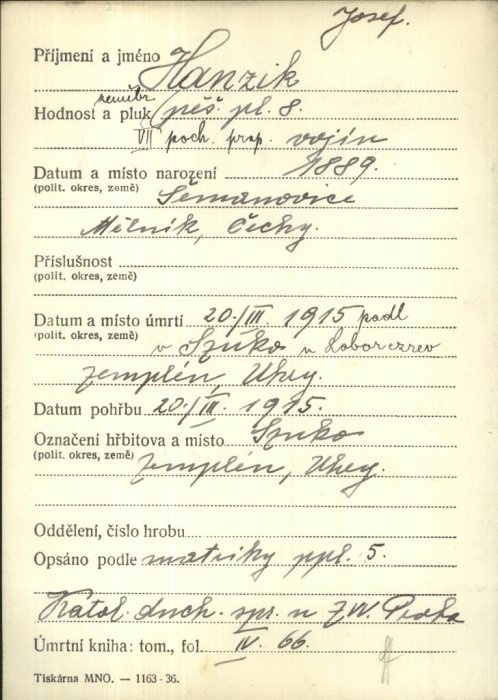 Josef.
Příjmení a jméno Hanzik
zeměbr.
Hodnost a pluk pěš. pl. 8.
VII poch. prap. vojín
Datum a místo narození 1889.
(polit. okres, země) Šemanovice
Mělník, Čechy.
Příslušnost
(polit. okres, země)
Datum a místo úmrtí 20./III. 1915 padl
(polit. okres, země) v Szuko u Laborczrev
Zemplén, Uhry.
Datum pohřbu 20./III. 1915.
Označení hřbitova a místo Szuko
(polit. okres, země) Zemplén, Uhry.
Oddělení, číslo hrobu
Opsáno podle matriky ppl. 5.
Katol. duch. spr. u ZVV. Praha
Úmrtní kniha: tom., fol. IV. 66.
Tiskárna MNO. — 1163-36.